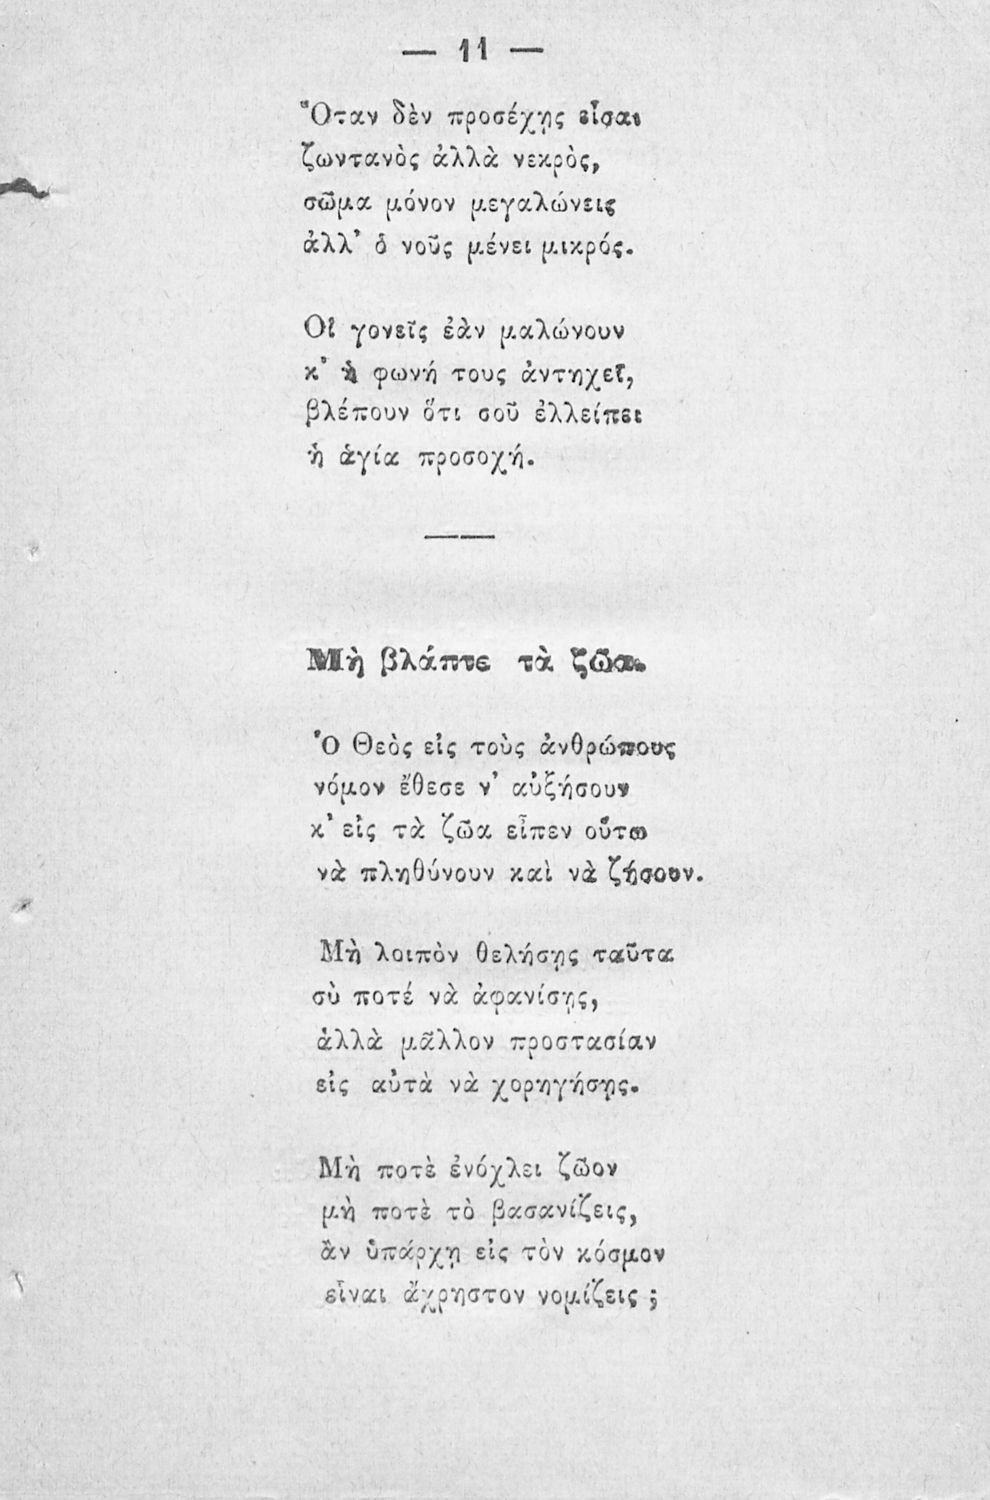 — 11 —
Ὅταν δὲν προσέχῃς εἶσαι
ζωντανὸς ἀλλὰ νεκρὸς,
σῶμα μόνον μεγαλώνεις
ἀλλ' ὁ νοῦς μένει μικρός.
Οἱ γονεῖς ἐὰν μαλώνουν
κ' ἡ φωνή τους ἀντηχεῖ,
βλέπουν ὅτι σοῦ ἐλλείπει
ἡ ἁγία προσοχή.
Μὴ βλάπτε τὰ ζῶα.
Ὁ Θεὸς εἰς τοὺς ἀνθρώπους
νόμον ἔθεσε ν' αὐξήσουν
κ' εἰς τὰ ζῶα εἶπεν οὕτω
νὰ πληθύνουν καὶ νὰ ζήσουν.
Μὴ λοιπὸν θελήσῃς ταῦτα
σὺ ποτέ νὰ ἀφανίσῃς,
ἀλλὰ μᾶλλον προστασίαν
εἰς αὐτὰ νὰ χορηγήσῃς.
Μὴ ποτὲ ἐνόχλει ζῶον
μὴ ποτὲ τὸ βασανίζεις,
ἂν ὑπάρχῃ εἰς τὸν κόσμον
εἶναι ἄχρηστον νομίζεις ;